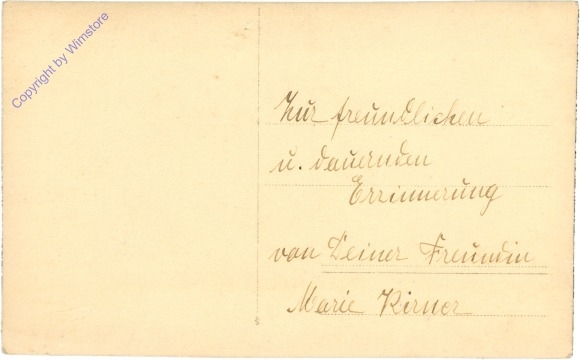 Copyright by Wimstore
Zur freundlichen
u. dauernden
Errinnerung
von Deiner Freundin
Marie Kirner